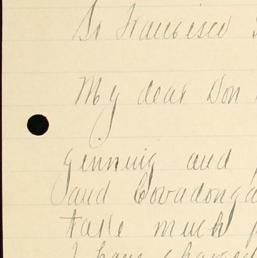 Sn Francisco
My dear Don
ginning and
and Covadonga
take much
I have